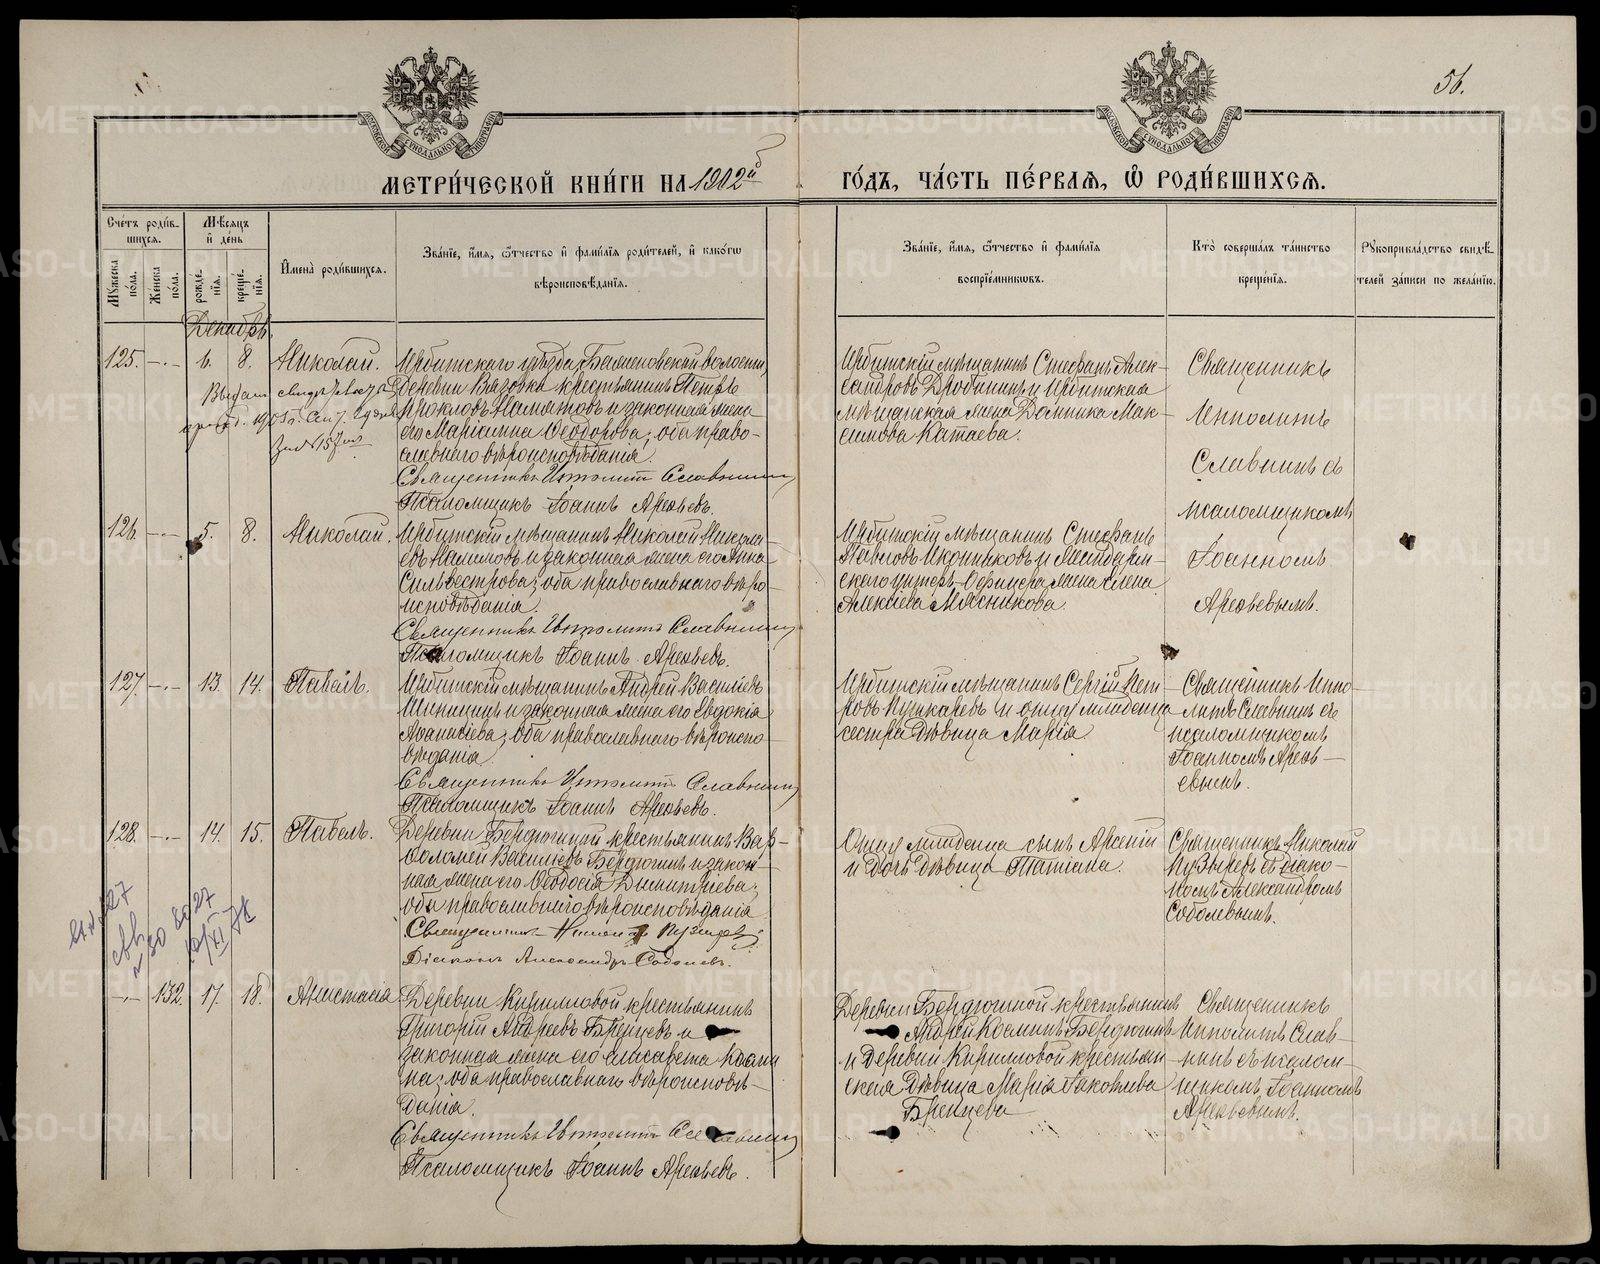 56.
МЕТРИ́ЧЕСКОЙ КНИ́ГИ НА 1902й
ГО́ДЪ, ЧА́СТЬ ПЕ́РВАѦ, Ѡ РОДИ́ВШИХСѦ.
Сче́тъ роди́в-
шихся.
Мѣ́сяцъ
и҆ де́нь
Му́жеска
по́ла.
Же́нска
по́ла.
рожде́-
нїѧ.
креще́-
нїѧ.
И҆мена̀ роди́вшихсѧ.
Зва́нїе, и҆́мѧ, ѻ҆́тчество и҆ фами́лїѧ роди́телей, и҆ како́гѡ
вѣроисповѣ́данїѧ.
Зва́нїе, и҆́мѧ, ѻ҆́тчество и҆ фами́лїѧ
воспрїе́мникѡвъ.
Кто̀ соверша́лъ та́инство
креще́нїѧ.
Рꙋкоприкла́дство свидѣ́-
телей за́писи по жела́нїю.
Декабрь.
125. —·— 6. 8. Николай.
Ирбитскаго уѣзда, волости,
деревни Вязовки крестьянинъ Петръ
Прокловъ и законная жена
его Маріанна Ѳеодорова; оба право-
славнаго вѣроисповѣданія.
Священникъ Ипполитъ Славнинъ
Псаломщикъ Іоаннъ Арефьевъ.
Ирбитскій мѣщанинъ Стефанъ Алек-
сандровъ и Ирбитская
мѣщанская жена Домника Мак-
симова Катаева.
Священникъ
Ипполитъ
Славнинъ съ
псаломщикомъ
Іоанномъ
Арефьевымъ.
126. —·— 5. 8. Николай.
Ирбитскій мѣщанинъ Николай Никола-
евъ и законная жена его Анна
Сильвестрова; оба православнаго вѣро-
исповѣданія.
Священникъ Ипполитъ Славнинъ
Псаломщикъ Іоаннъ Арефьевъ.
Ирбитскій мѣщанинъ Стефанъ
Павловъ Иконниковъ и
унтеръ-офицера жена Елена
Алексіева Мясникова.
127. —·— 13. 14. Павелъ.
Ирбитскій мѣщанинъ Андрей Василіевъ
Шипицинъ и законная жена его Евдокія
Аѳанасіева; оба православнаго вѣроиспо-
вѣданія.
Священникъ Ипполитъ Славнинъ
Псаломщикъ Іоаннъ Арефьевъ.
Ирбитскій мѣщанинъ Сергій Пет-
ровъ Пушкаревъ и отца младенца
сестра дѣвица Марія.
Священникъ Иппо-
литъ Славнинъ съ
псаломщикомъ
Іоанномъ Арефь-
евымъ.
128. —·— 14. 15. Павелъ.
Деревни Бердюгиной крестьянинъ Вар-
ѳоломей Василіевъ Бердюгинъ и закон-
ная жена его Ѳеодосія Димитріева;
оба православнаго вѣроисповѣданія
Священникъ Николай Пузыревъ
Діаконъ Александръ Соболевъ.
Отца младенца сынъ Арсеній
и дочь дѣвица Татіана.
Священникъ Николай
Пузыревъ съ діако-
номъ Александромъ
Соболевымъ.
—·— 132. 17. 18. Анастасія
Деревни Кирилловой крестьянинъ
Григорій Андреевъ Бренцевъ и
законная жена его Елисавета Косми-
на; оба православнаго вѣроисповѣ-
данія.
Священникъ Ипполитъ Славнинъ
Псаломщикъ Іоаннъ Арефьевъ.
Деревни Бердюгиной крестьянинъ
Андрей Косминъ Бердюгинъ
и деревни Кирилловой крестьян-
ская дѣвица Марія Іаковлева
Бренцева
Священникъ
Ипполитъ Слав-
нинъ съ псалом-
щикомъ Іоанномъ
Арефьевымъ.
METRIKI.GASO-URAL.RU